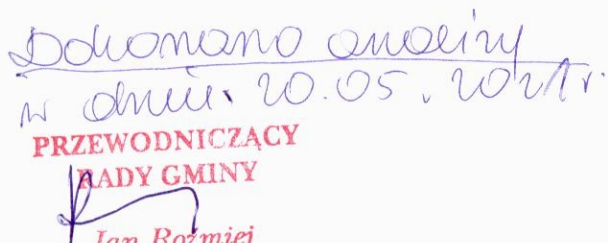 Dokonano analizy
w dniu. 20.05.2021r.
PRZEWODNICZĄCY
RADY GMINY
Jan Rozmiej